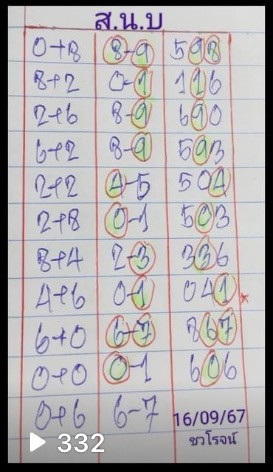 ส.น.บ
0+8 8-9 598
8+2 0-1 116
2+6 8-9 690
6+2 8-9 593
2+2 4-5 504
2+8 0-1 503
8+4 2-3 336
4+6 0-1 041
6+0 6-7 867
0+0 0-1 606
0+6 6-7 16/09/67
332 ชวโรจน์